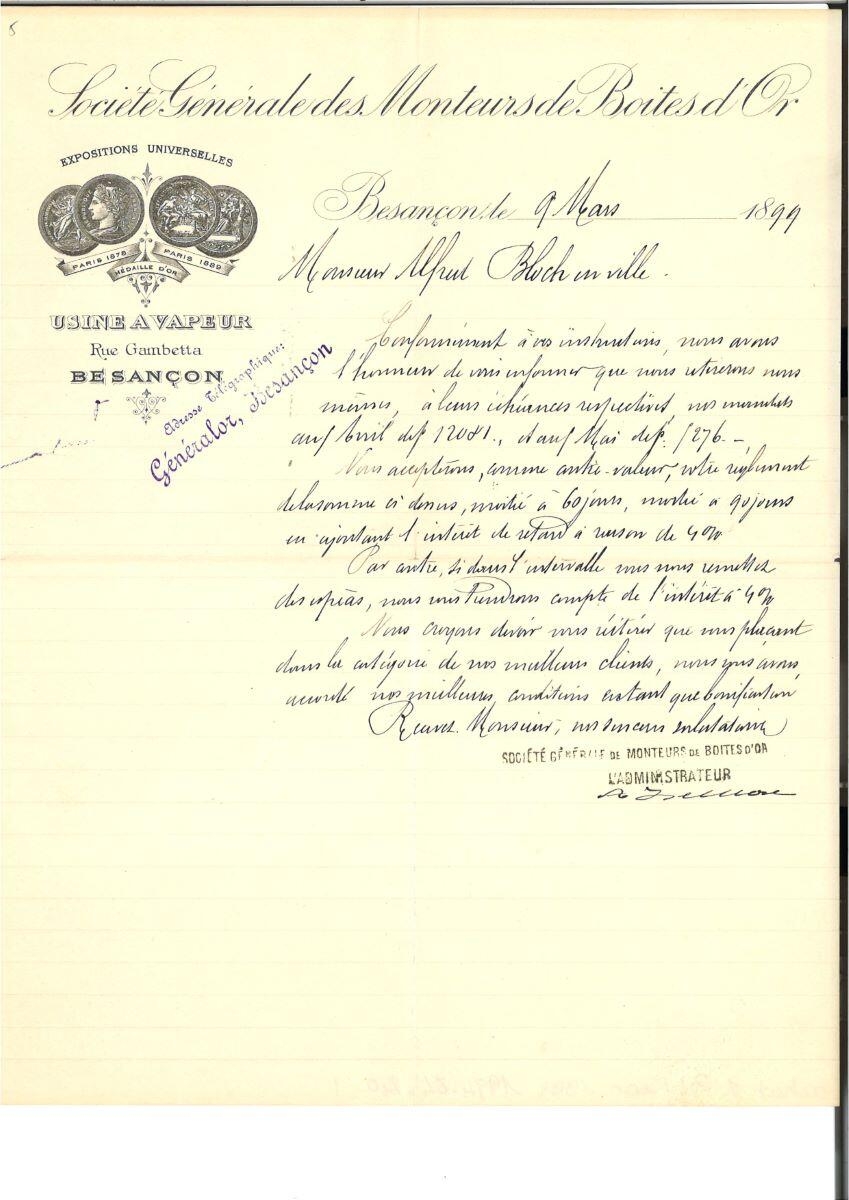 Société Générale des Monteurs de Boites d'Or
EXPOSITIONS UNIVERSELLES
PARIS 1878
PARIS 1889
MÉDAILLE D'OR
USINE A VAPEUR
Rue Gambetta
BESANÇON
Adresse Télégraphique:
Généralor, Besançon
Besançon, le 9 Mars 1899
Monsieur Alfred Bloch en ville.
Conformément à vos instructions, nous avons
l'honneur de vous informer que nous retirerons nous
mêmes, à leurs échéances respectives, nos mandats
au 5 Avril de f 12081., et au 5 Mai de f.
Nous accepterons, comme contre-valeur, votre règlement
de la somme ci dessus, moitié à 60 jours, moitié à 90 jours
en ajoutant l'intérêt de retard à raison de 4%
Par contre, si dans l'intervalle vous nous remettez
des espèces, nous vous tiendrons compte de l'intérêt à 4%
Nous croyons devoir vous réitérer que vous plaçant
dans la catégorie de nos meilleurs clients, nous vous avons
accordé nos meilleures conditions en tant que bonification
Recevez Monsieur, nos sincères salutations
SOCIÉTÉ GÉNÉRALE DE MONTEURS DE BOITES D'OR
L'ADMINISTRATEUR